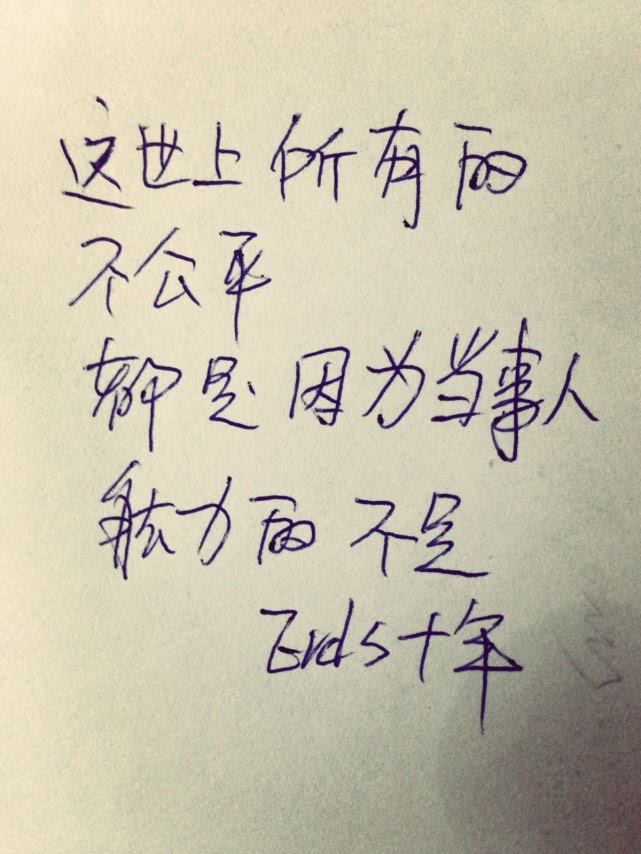 这世上所有的
不公平
都是因为当事人
能力的不足
Erds十年